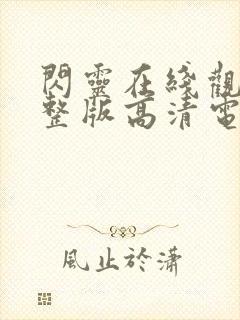 閃靈在綫觀
整版高清電
風止於瀟